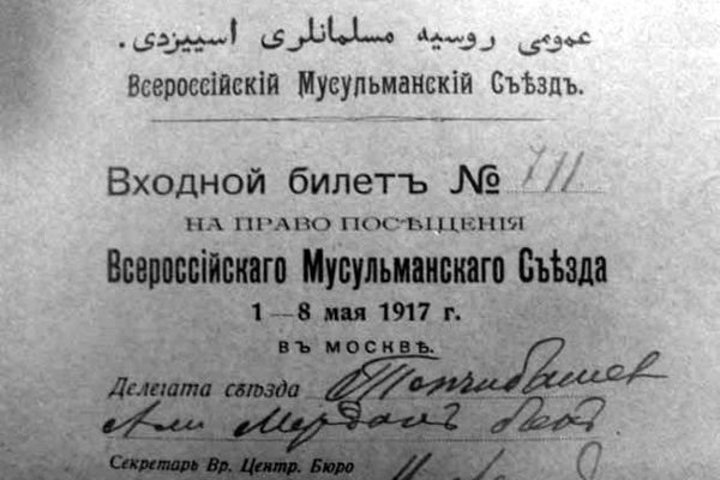 عمومی روسیه مسلمانلری اسییزدی.
Всероссійскій Мусульманскій Съѣздъ.
Входной билетъ № 711
НА ПРАВО ПОСѢЩЕНІЯ
Всероссійскаго Мусульманскаго Съѣзда
1—8 мая 1917 г.
ВЪ МОСКВѢ.
Делегата съѣзда Топчибашев
Али Мердан бек
Секретарь Вр. Центр. Бюро